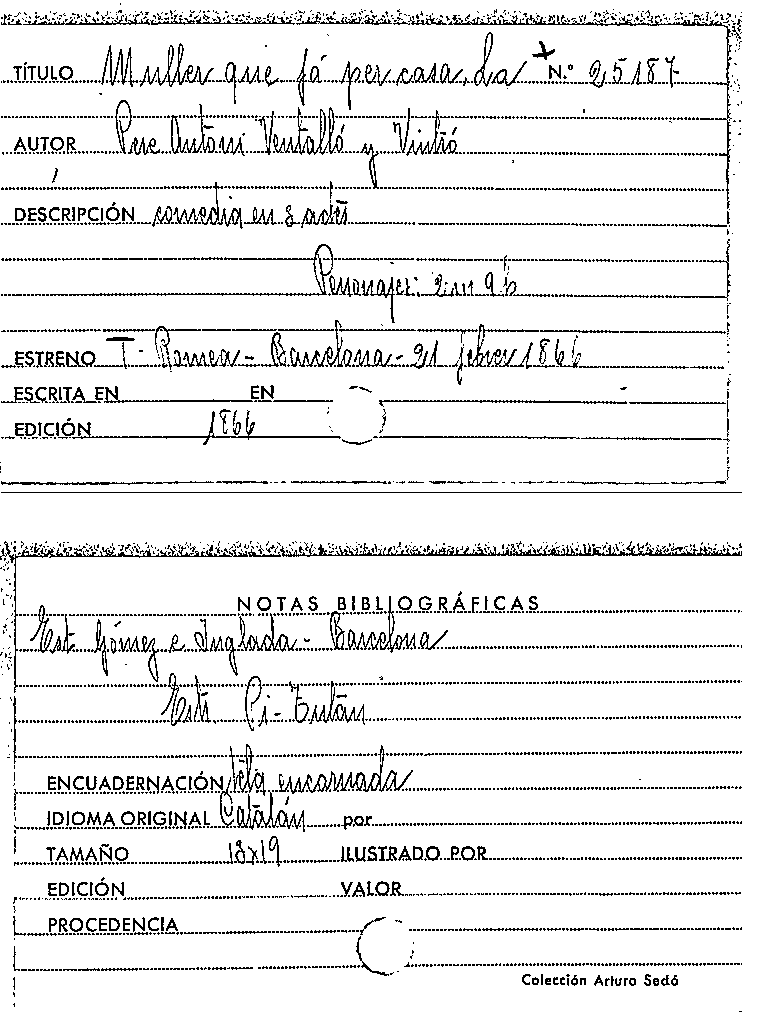 TÍTULO Muller que fá per casa, La N.º 25187
AUTOR Pere Antoni Ventalló y Vintró
DESCRIPCIÓN comedia en 3 actes
Personajes: 2m 9h
ESTRENO T- Romea - Barcelona - 21 febrer 1866
ESCRITA EN EN
EDICIÓN 1866
NOTAS BIBLIOGRÁFICAS
Est. Gómez e Inglada - Barcelona
Pi-
ENCUADERNACIÓN tela encarnada
IDIOMA ORIGINAL Catalán por
TAMAÑO 13x19 ILUSTRADO POR
EDICIÓN VALOR
PROCEDENCIA
Colección Arturo Sedó